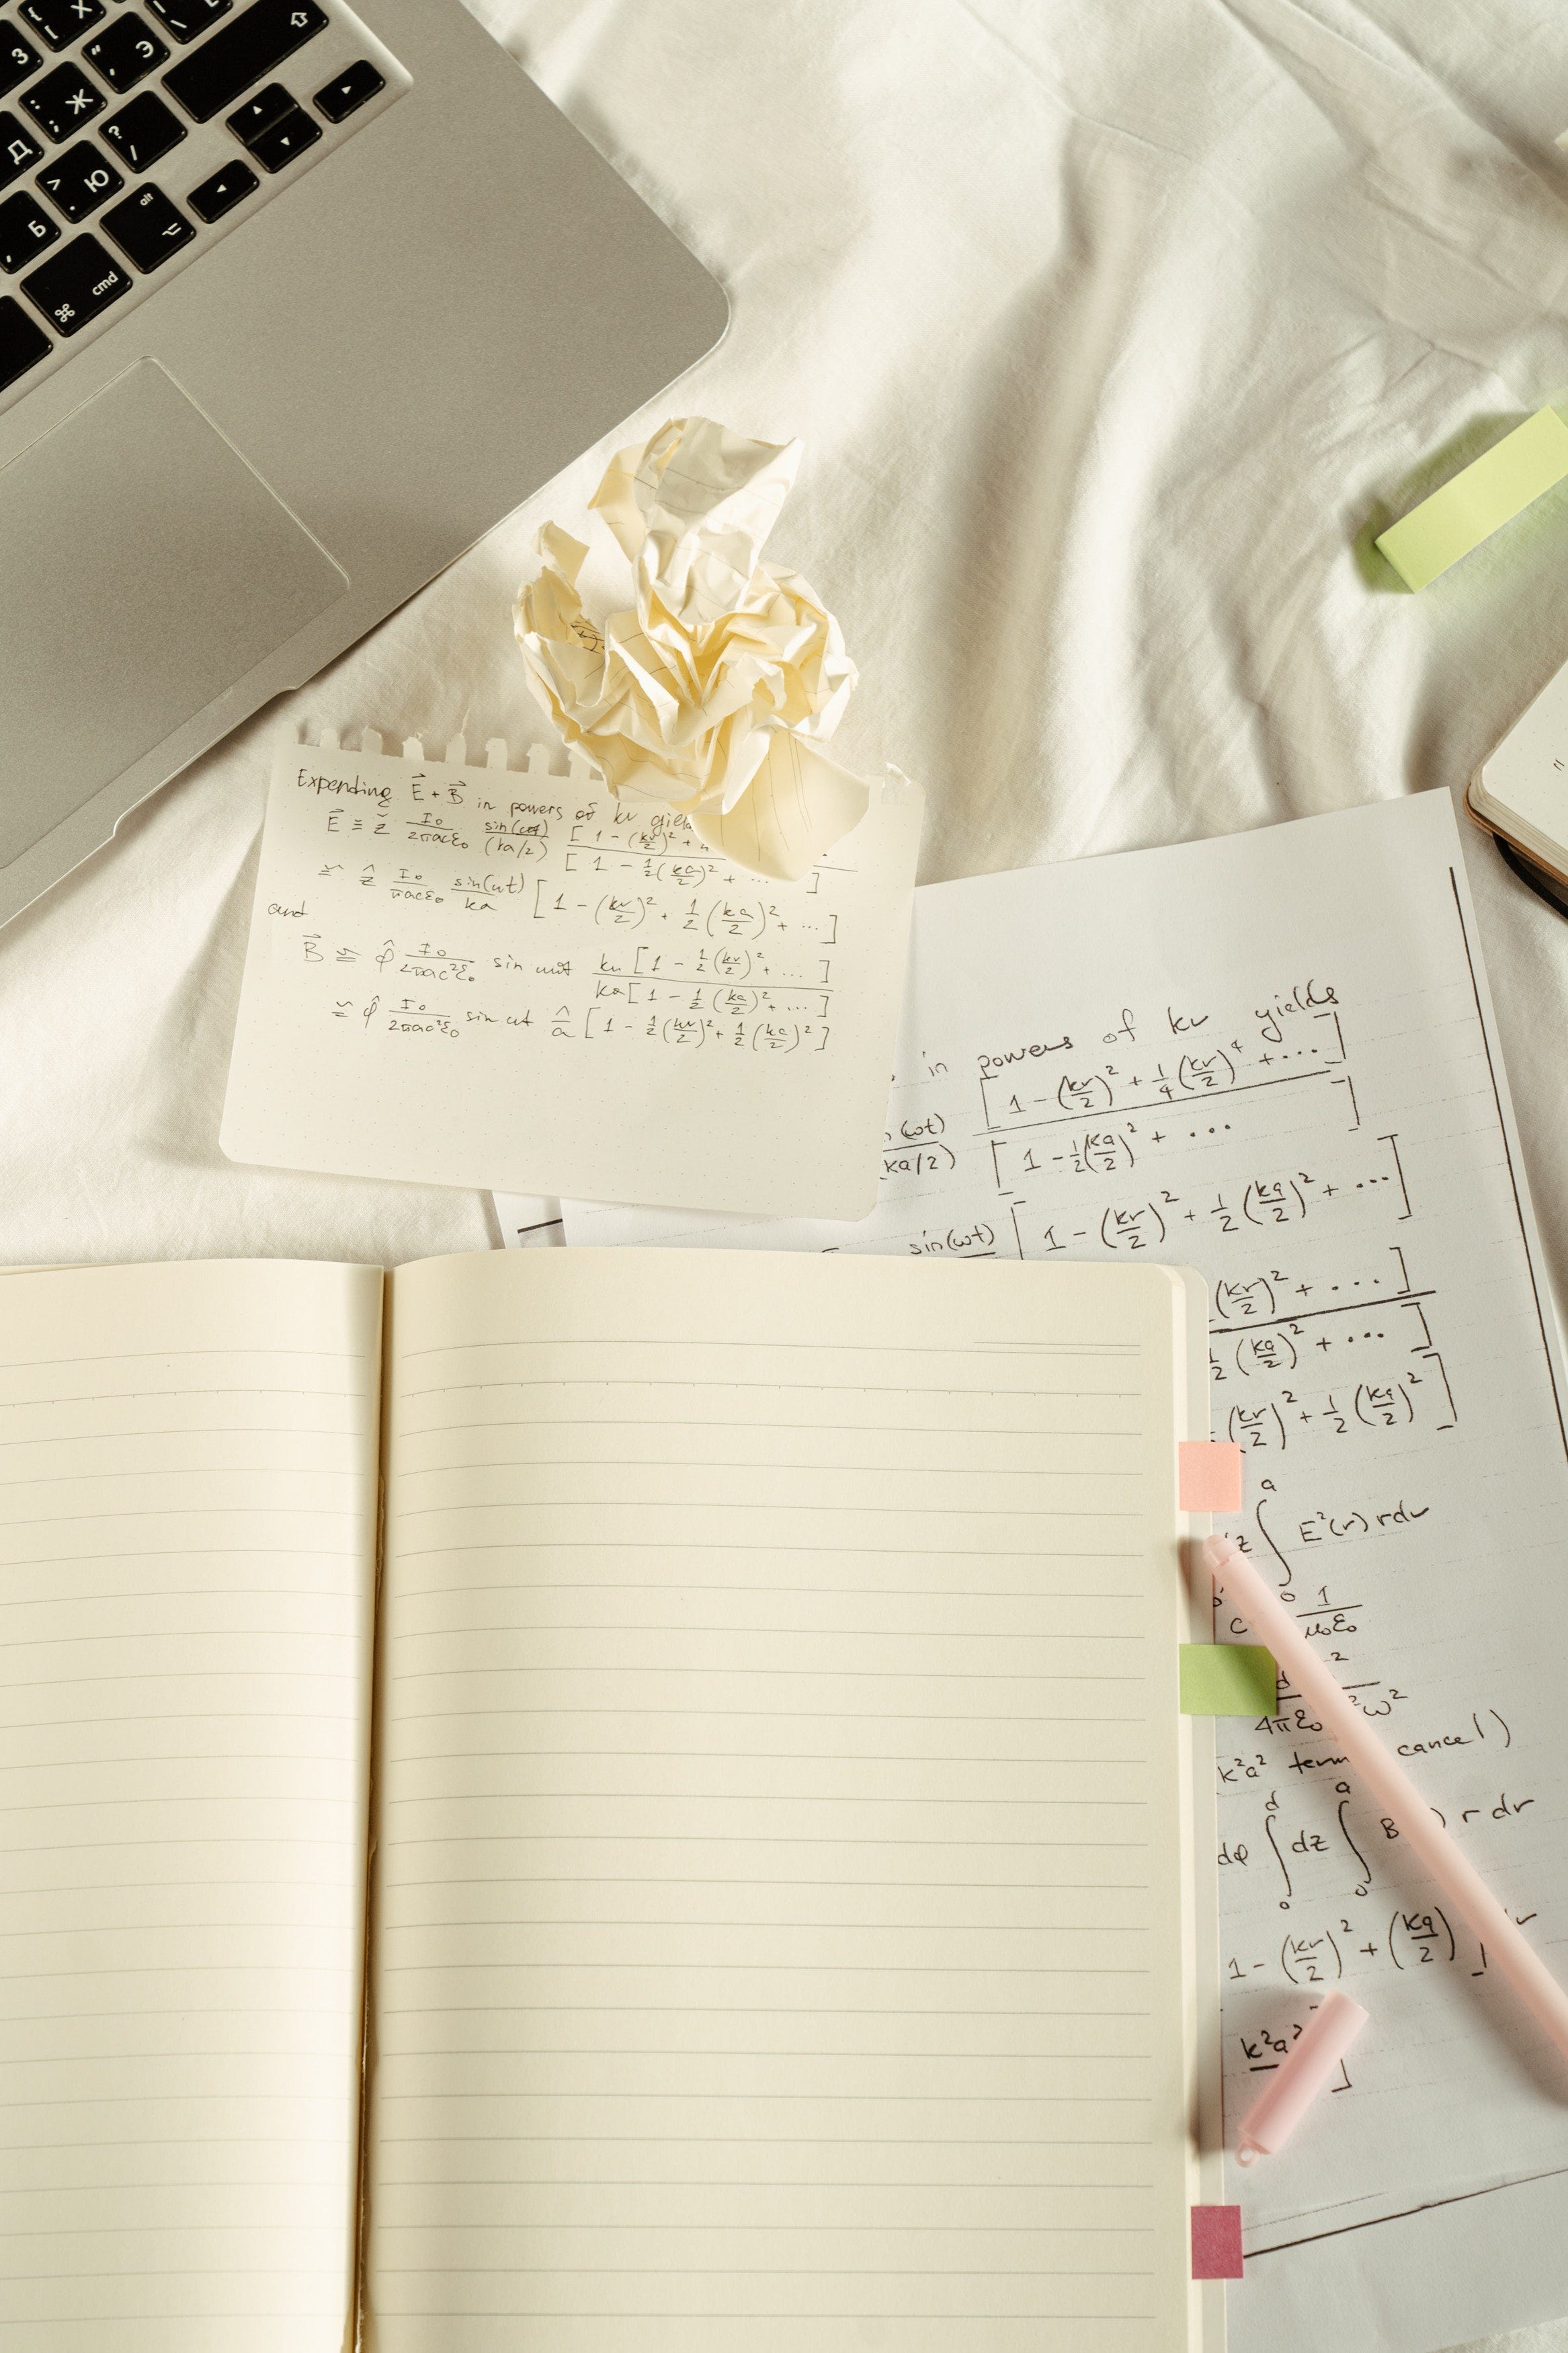 { [ Х
} ] 
| \
З
" ' Э
⇧
: ; Ж
Д
? /
> . Ю
, Б
alt ⌥
⌘ cmd
Expending E⃗ + B⃗ in powers of kr
E⃗ ≅ ẑ I₀/2πacε₀ sin(ωt)/(ka/2) [1 - (kr/2)² +
[1 - ½(ka/2)² + ... ]
≅ ẑ I₀/πacε₀ sin(ωt)/ka [1 - (kr/2)² + ½(ka/2)² + ... ]
and
B⃗ ≅ φ̂ I₀/2πac²ε₀ sin ωt kr[1 - ½(kr/2)² + ... ]
ka[1 - ½(ka/2)² + ... ]
≅ φ̂ I₀/2πac²ε₀ sin ωt r/a [1 - ½(kr/2)² + ½(ka/2)²]
in powers of kr yields
[1 - (kr/2)² + ¼(kr/2)⁴ + ... ]
(ωt)/(ka/2) [1 - ½(ka/2)² + ... ]
sin(ωt) [1 - (kr/2)² + ½(ka/2)² + ... ]
(kr/2)² + ... ]
½(ka/2)² + ... ]
(kr/2)² + ½(ka/2)²]
z ∫₀ᵃ E²(r) r dr
c 1/μ₀ε₀
d ²
4πε₀ ²ω²
k²a² term cancel)
dφ ∫₀ᵈ dz ∫₀ᵃ B ) r dr
1 - (kr/2)² + (ka/2) ] dr
k²a² ]